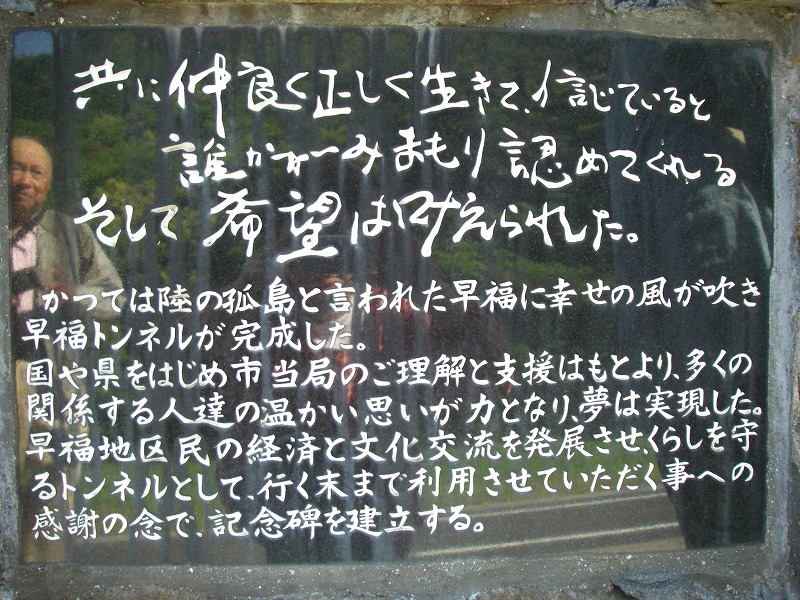 共に仲良く正しく生きて、信じていると
誰かが一みまもり認めてくれる
そして希望は叶えられました。
かつては陸の孤島と言われた早福に幸せの風が吹き
早福トンネルが完成した。
国や県をはじめ市当局のご理解と支援はもとより、多くの
関係する人達の温かい思いが力となり、夢は実現した。
早福地区民の経済と文化交流を発展させ、くらしを守
るトンネルとして、行く末まで利用させていただく事への
感謝の念で、記念碑を建立する。